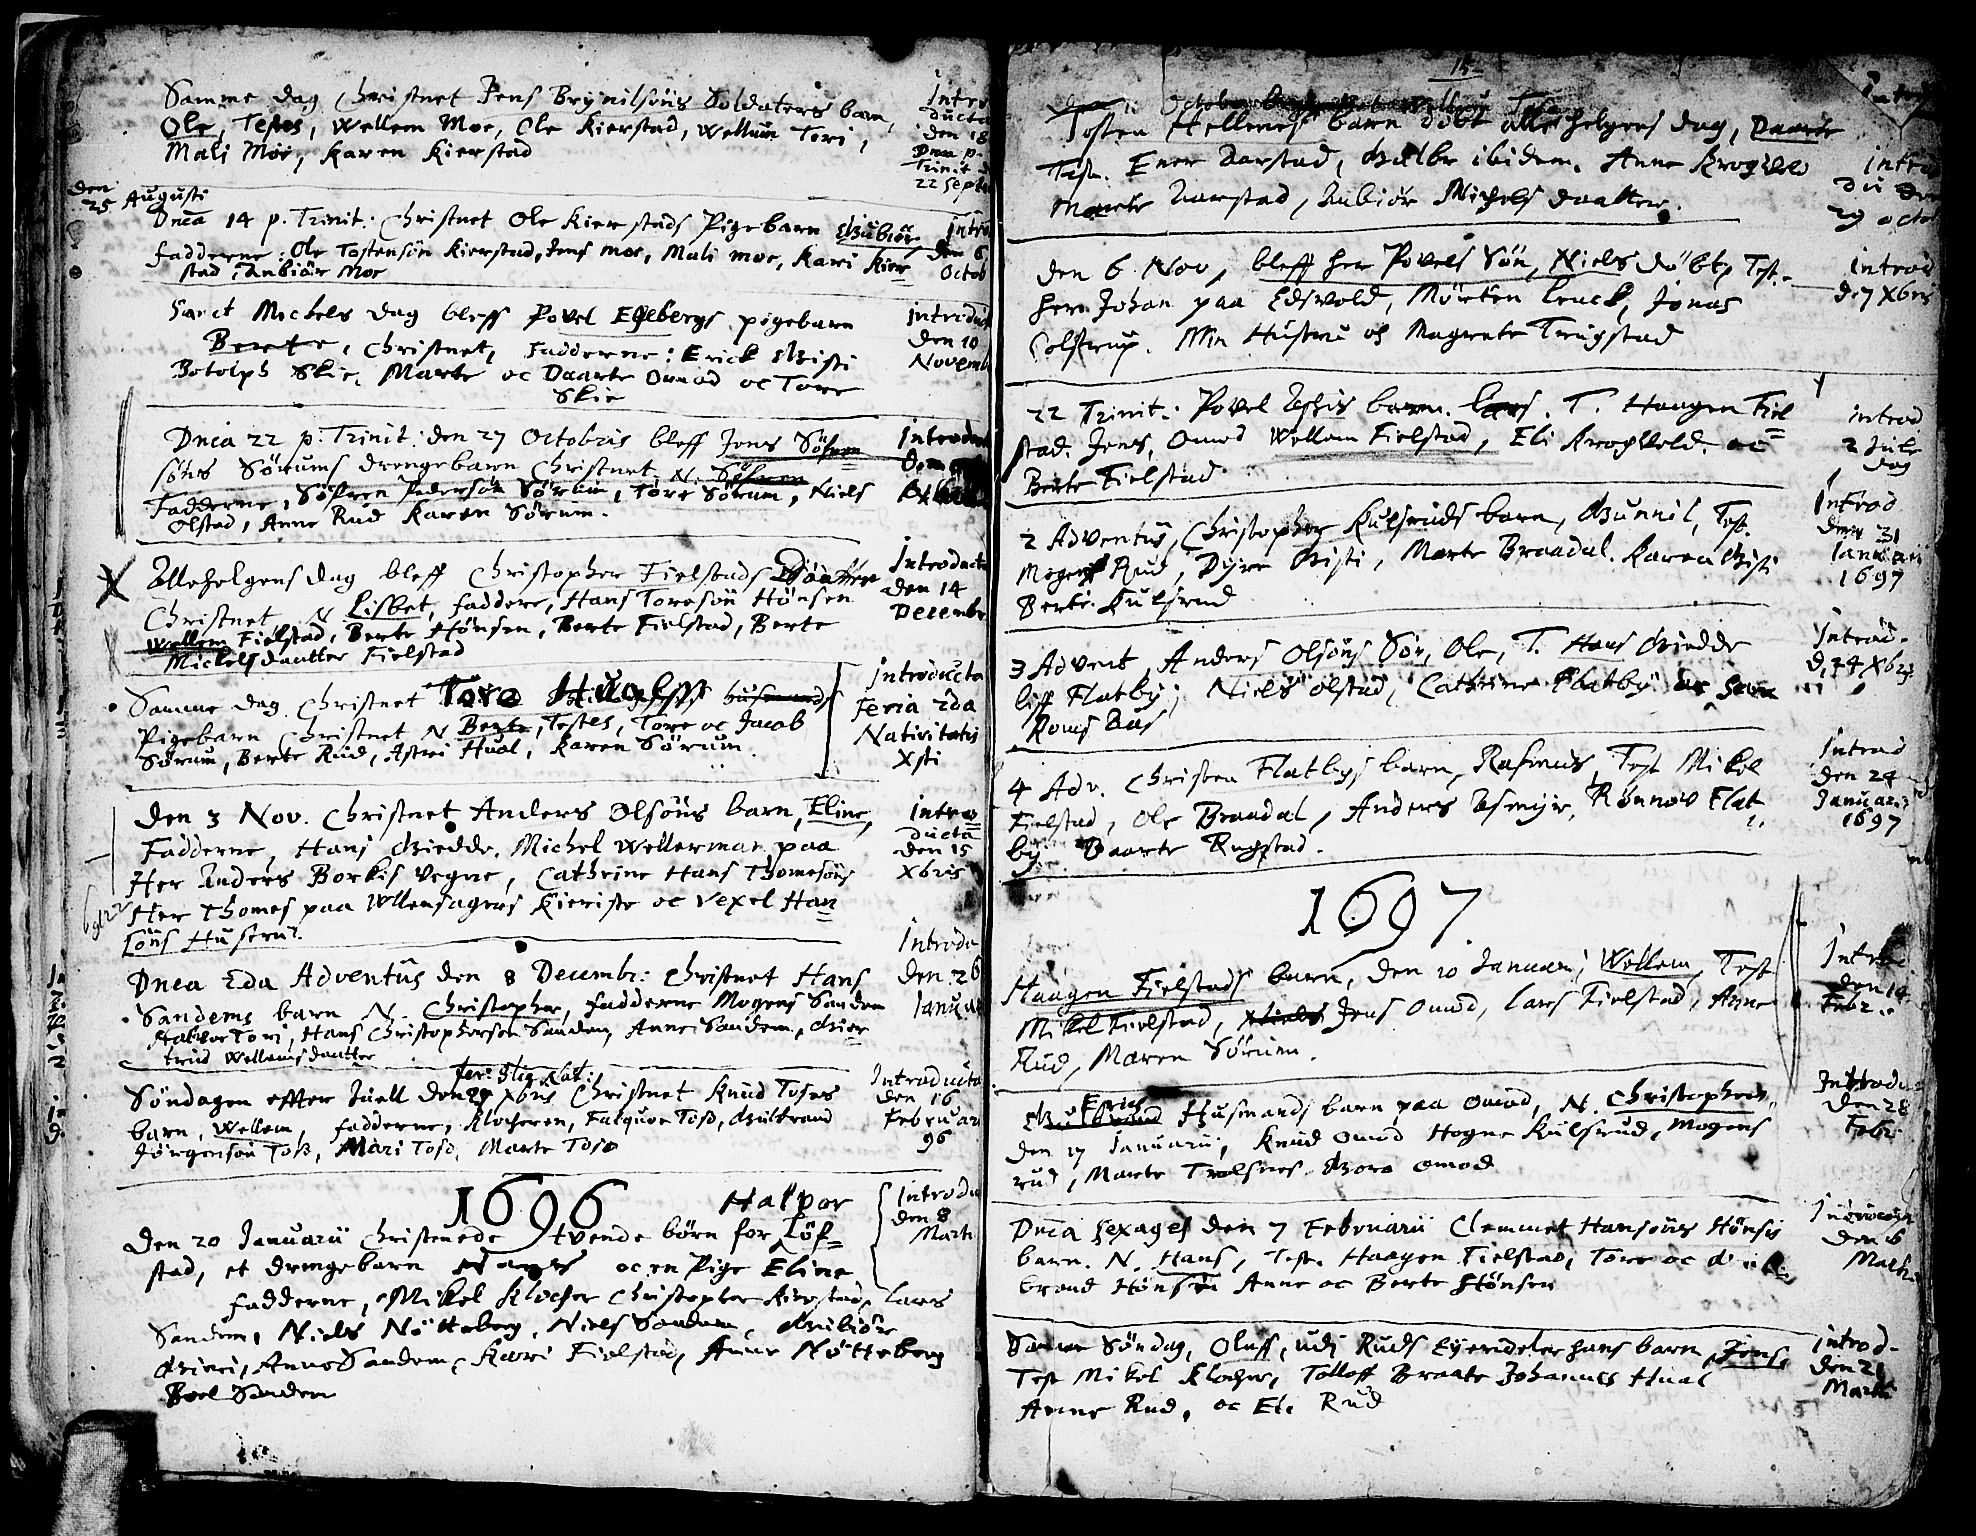 Samme dag Christnet Jens Brÿnilsöns Soldaters barn,
Ole, Testes, Wellem Moe, Ole Kierstad, Wellum Tori,
Mali Moe, Karen Kierstad
Intro
ducta
den 18
Dnca p.
Trinit
22 Sept
den
25 Augusti
Dnca 14 p. Trinit: Christnet Ole Kierstads Pigebarn Gubiör,
fadderne: Ole Tostensön Kierstad, Jens Moe, Mali Moe, Kari Kier=
stad, Anbiör Moe
Intro
den 6
Octob
Sanct Mickels dag bleff Povel Egebergs pigebarn
Berete, Christnet, Fadderne: Erick Gisti
Botolph Skie, Marte oc Daarte Omod oc Tore
Skie
Introduct
den 10
Novemb
Dnca 22 p: Trinit: den 27 Octobris bleff Jens Söfren
söns Sörums drengebarn Christnet N. Söfren
Fadderne, Söfren Pedersön Sörum, Tore Sörum, Niels
Olstad, Anne Rud Karen Sörum.
Introdu
Allehelgens dag bleff Christopher Fielstads Daatter
Christnet N Lisbet, faddere, Hans Toresön Hönsen
Wellem Fielstad, Berte Hönsen, Berte Fielstad, Berte
Mickelsdaatter Fielstad
Introducta
den 14
Decembr
Samme dag Christnet Tore Hualss husmands
Pigebarn Christnet N Berte, Testes, Tore oc Jacob
Sörum, Berte Rud, Astri Hual, Karen Sörum
Introducta
Feria 2da
Nativitatis
Xsti
Den 3 Nov. Christnet Anders Olsöns barn, Eline,
Fadderne, Hans Giedde, Michel Wellerman paa
Her Anders Borkis Vegne, Cathrine Hans Thomesöns
Her Thomes paa Wllensagers Kieriste oc Vexel Han=
söns Hustru.
Intro=
ducta
den 15
Xbris
Dnca 2da Adventus den 8 Decembr: Christnet Hans
Sandems barn N. Christopher, fadderne Mogens Sandem
Halvor Tori, Hans Christophersen Sandem, Anne Sandem, Gier=
trud Wellemsdaatter
Introdu
den 26
Janua
fer: 3tia Nat:
Söndagen efter Juell den 29 Xbris Christnet Knud Toses
barn, Wellem, fadderne, Klockeren, Falquor Toso, Gulbrand
Jörgensön Toso, Mari Toso, Marte Toso
Introducta
den 16
Februar
96
1696
Den 20 Januarii Christenede tvende börn for Halvor Löf=
stad, et drengebarn oc en Pige Eline
fadderne, Mikel Klocher Christopher Kierstad, Lars
Sandem, Niels Nötteberg, Niels Sandem, Gubiöre
Gieri, Anne Sandem, Kari Fielstad, Anne Nötteberg
Boel Sandem
Introdu
den 8
Marti
15
Tosten Hellenes barn döbt alle helgens dag, Daarte
Test. Ener Aarstad, Gulbr ibidem. Anne Krogvold
Marte Aarstad, Anbiör Michels daatter.
introd
du den
29 octob
den 6 Nov, bleff her Povels Sön, Niels döbt, Test.
her Johan paa Edsvold, Mörten Leuch, Jonas
Colstrup. Min Hustru oc Magrete Trugstad
introd
d. 7 Xbris
22 Trinit: Povel Asgis barn. Lars. T. Haagen Fiel
stad. Jens, Omod Wellem Fielstad, Eli Krogvold. oc=
Berte Fielstad
introd
2 Jule
dag
2 Adventus, Christopher Kulsruds barn, Gunnil, Test.
Mogens Rud, Dyre Gisti, Marte Braadal. Karen Gisti
Berte Kulsrud
Introd
den 31
Januari
1697
3 Advent, Anders Olsöns Sön, Ole, T. Hans Giedde
liff Flatby, Niels Olstad, Cathrine Flatby
Roms
Introd.
d. 24 Xbris
4 Adv. Christen Flatbys barn, Rasmus, Test Mikel
Fielstad, Ole Braadal, Anders Asmyr, Rönnov Flat
by Daarte Rugstad.
Introd
den 24
Januari
1697
1697
Haagen Fielstads barn, den 10 Januari, Wellem, Test
Mikel Fielstad, Jens Omod, Lars Fielstad, Anne
Rud, Maren Sörum.
Introd
den 14
Febr.
Erics
Gulbrand Husmands barn paa Omod, N. Christopher,
den 17 Januarii, Knud Omod Hogne Kulsrud, Mogens
rud, Marte Trolsnes Boro Omod
Introdu=
den 28
Febr
Dnca Sexages den 7 Februarii Clemmet Hansöns Hönsis
barn. N. Hans, Test. Haagen Fielstad, Tore oc Gul
brand Hönsen Anne oc Berte Hönsen
Introdu
den 6
Marti
Samme Söndag, Oluff, udi Ruds Eyendeler hans barn, Jens,
Test Mikel Klocher, Tolloff Braate Johannes Hual
Anne Rud, oc Eli Rud
introd=
den 21
Marti